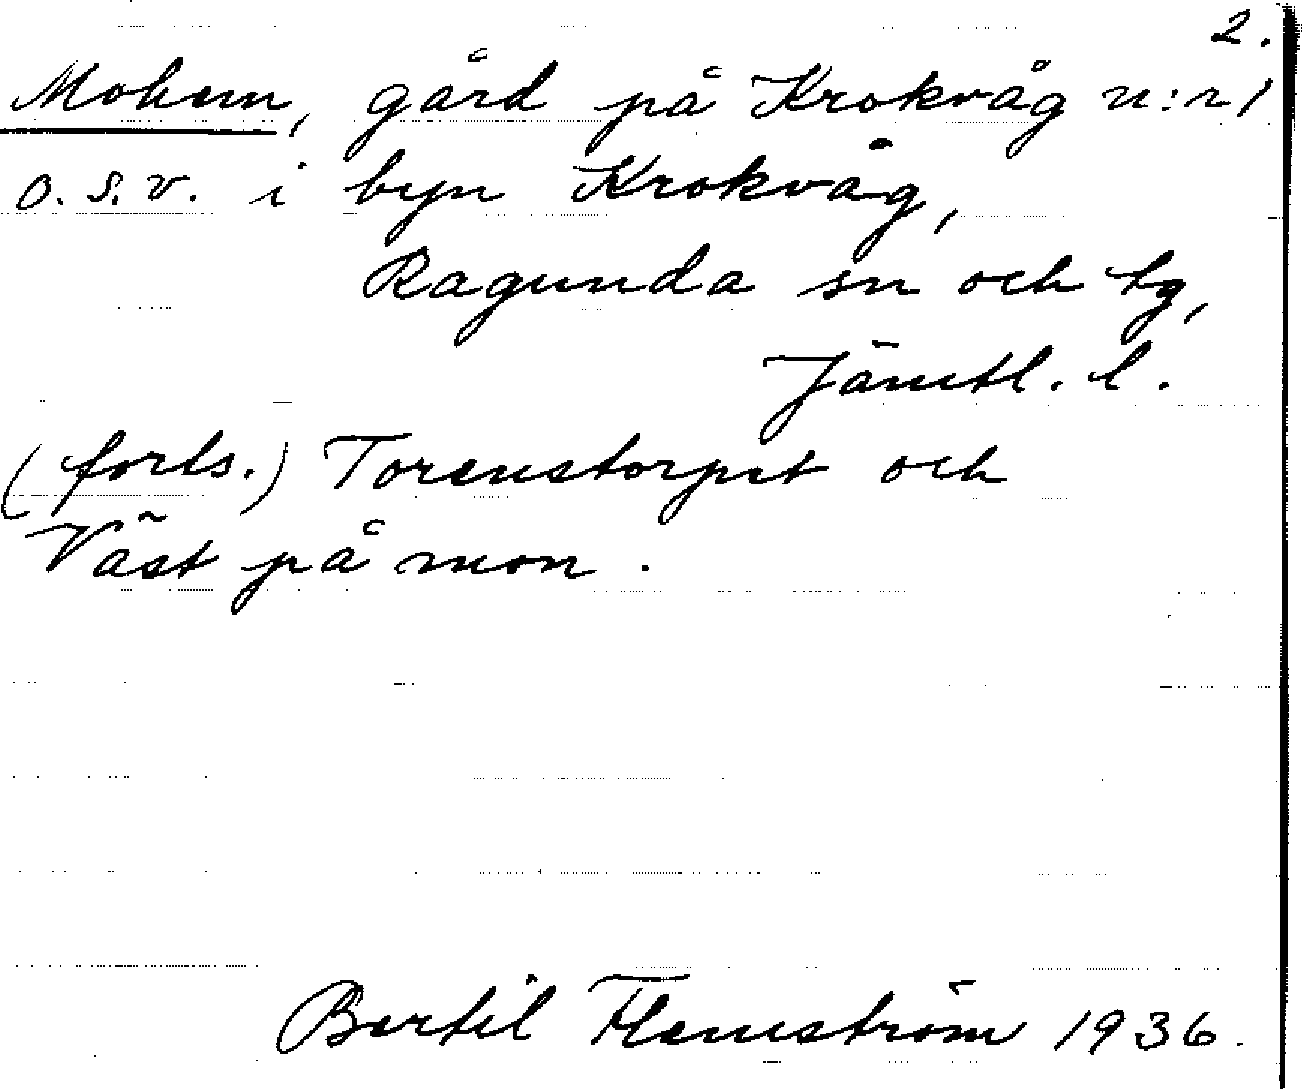 2.
Mohem, gård på Krokvåg n:r 1
o.s.v. i byn Krokvåg,
Ragunda sn och tg,
Jämtl. l.
(forts.) Torenstorpet och
Väst på mon.
Bertil Flemström 1936.